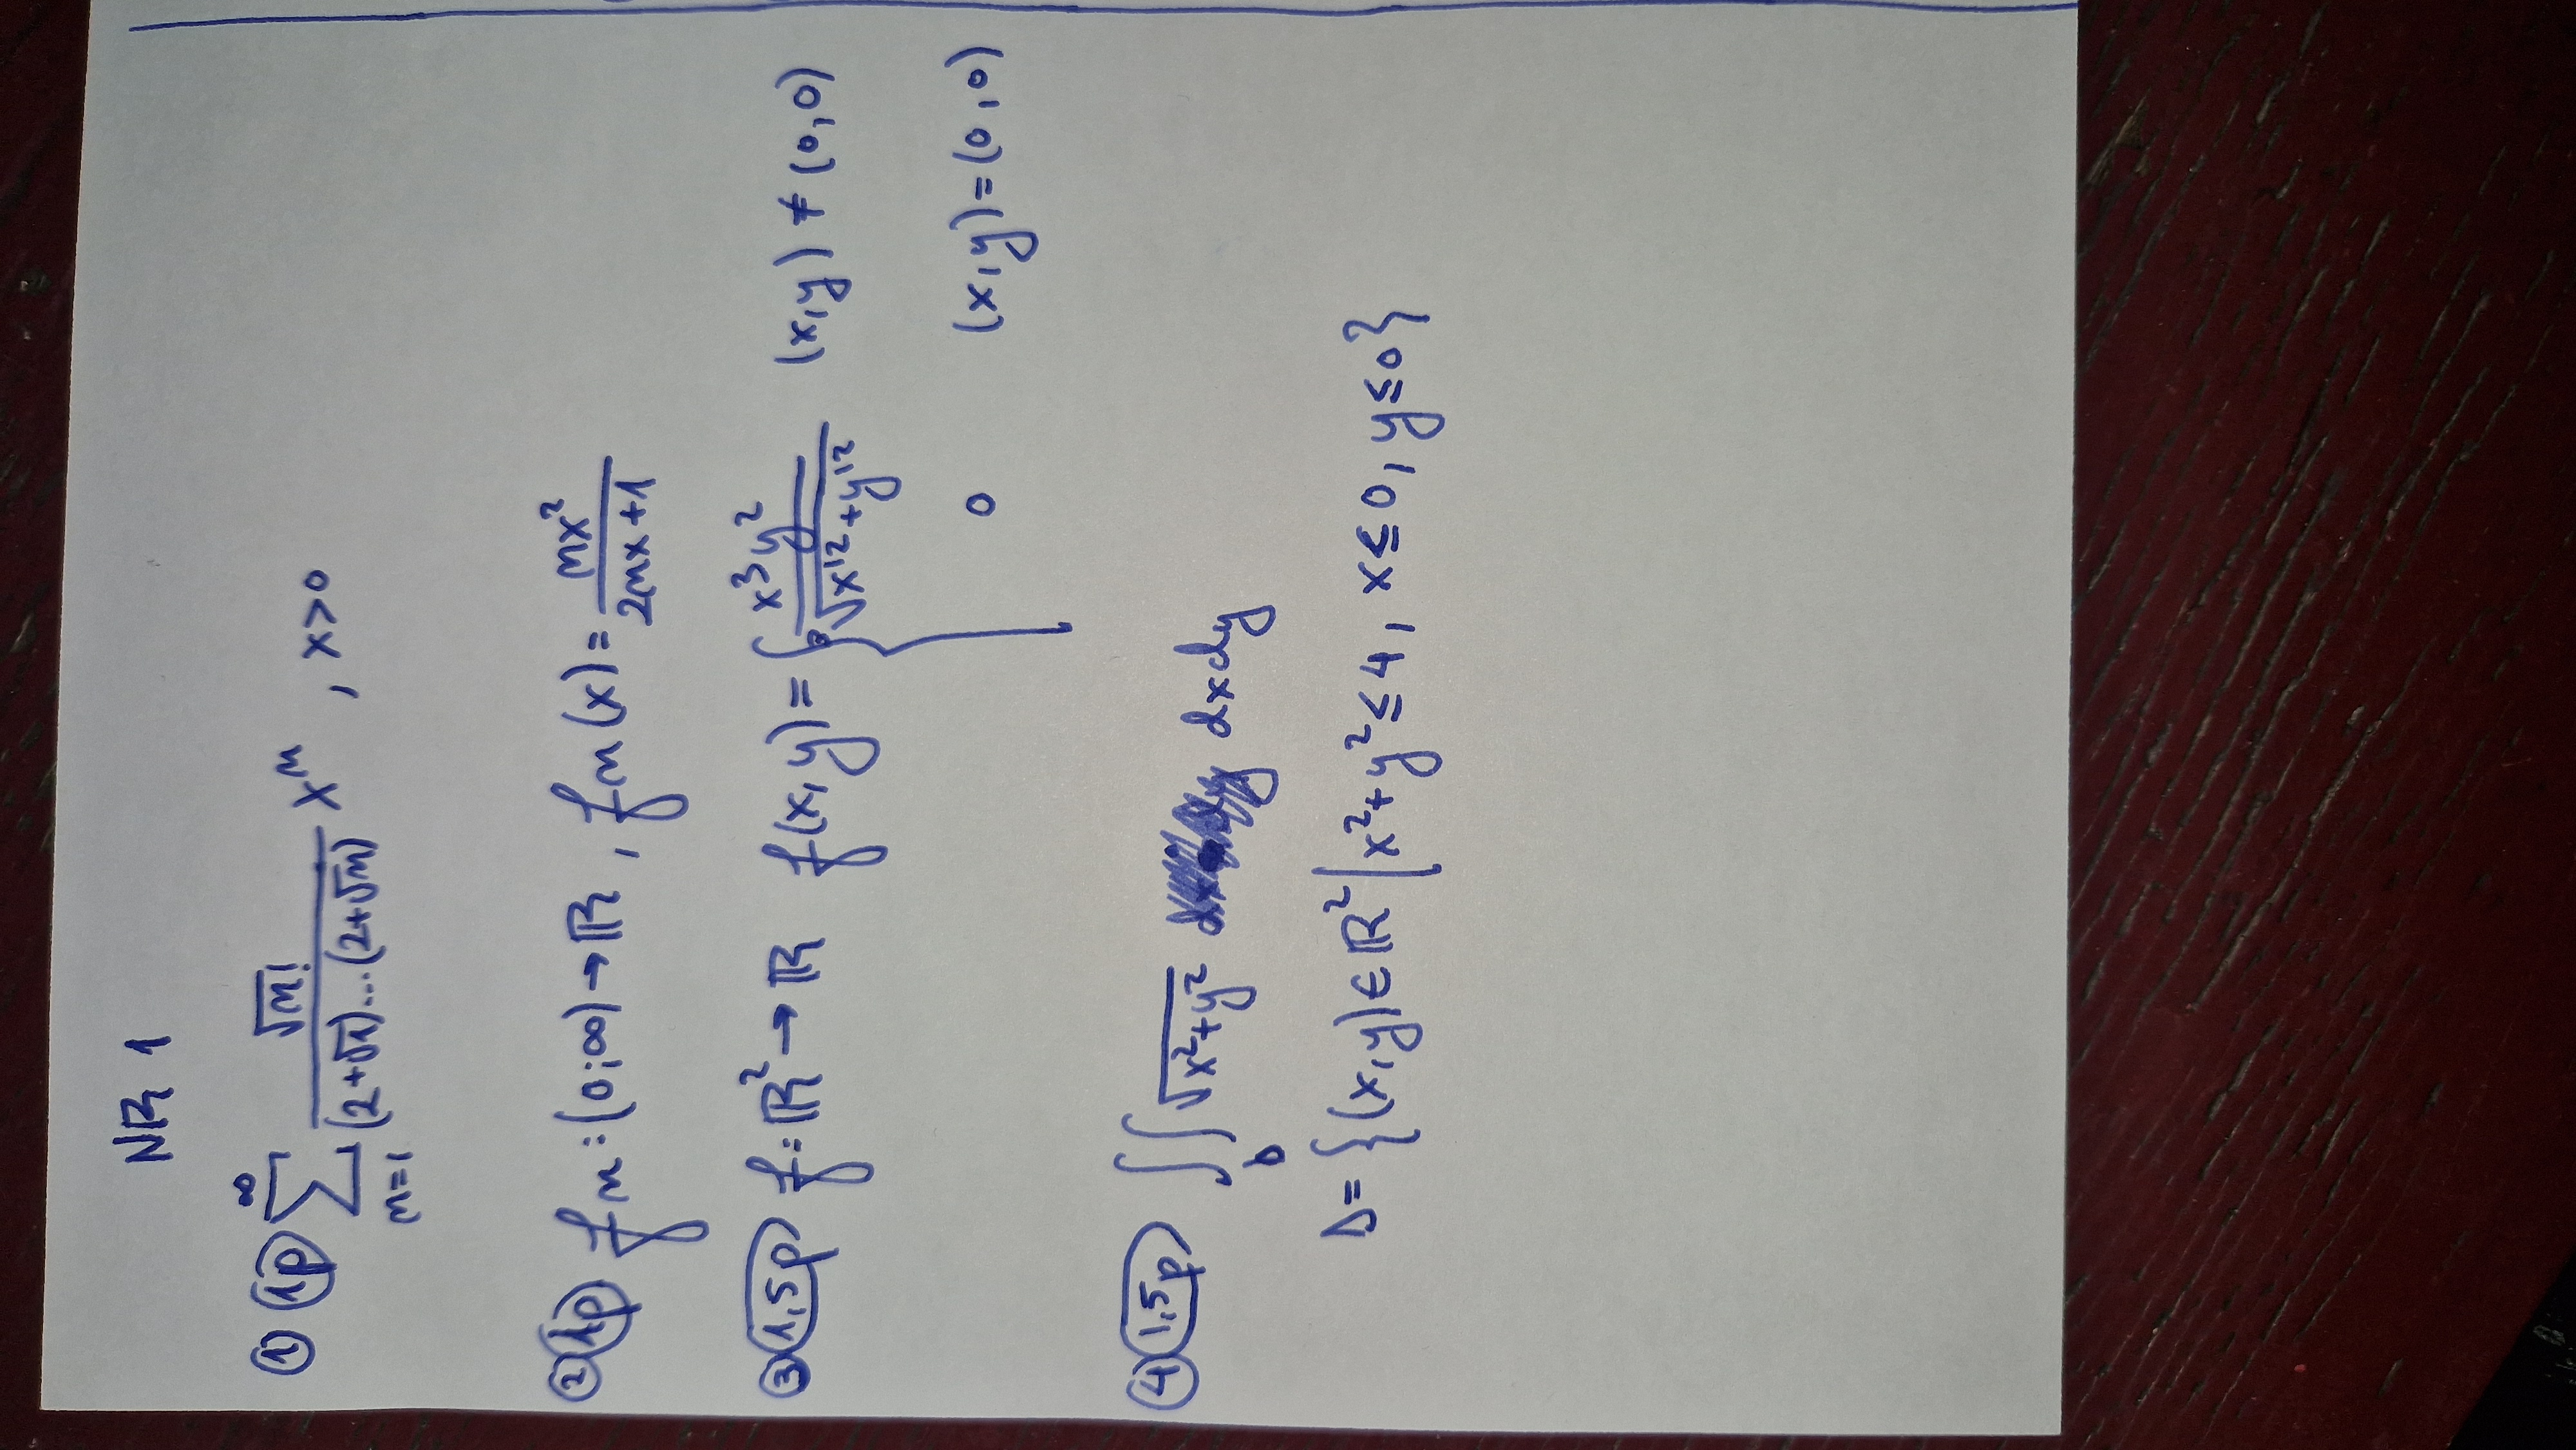 NR 1
① (1p) ∑_{n=1}^{∞} √n! / ((2+√1)...(2+√n)) xⁿ , x>0
② (1p) fn : (0;∞) → ℝ , fn(x) = nx² / (2nx+1)
③ (1,5p) f: ℝ² → ℝ f(x,y) = { x³y² / ∛(x¹²+y¹²) (x,y) ≠ (0,0)
0 (x,y)=(0,0)
④ (1,5p) ∬_D √(x²+y²) dxdy
D = {(x,y)∈ℝ² | x²+y² ≤ 4, x≤0, y≤0}